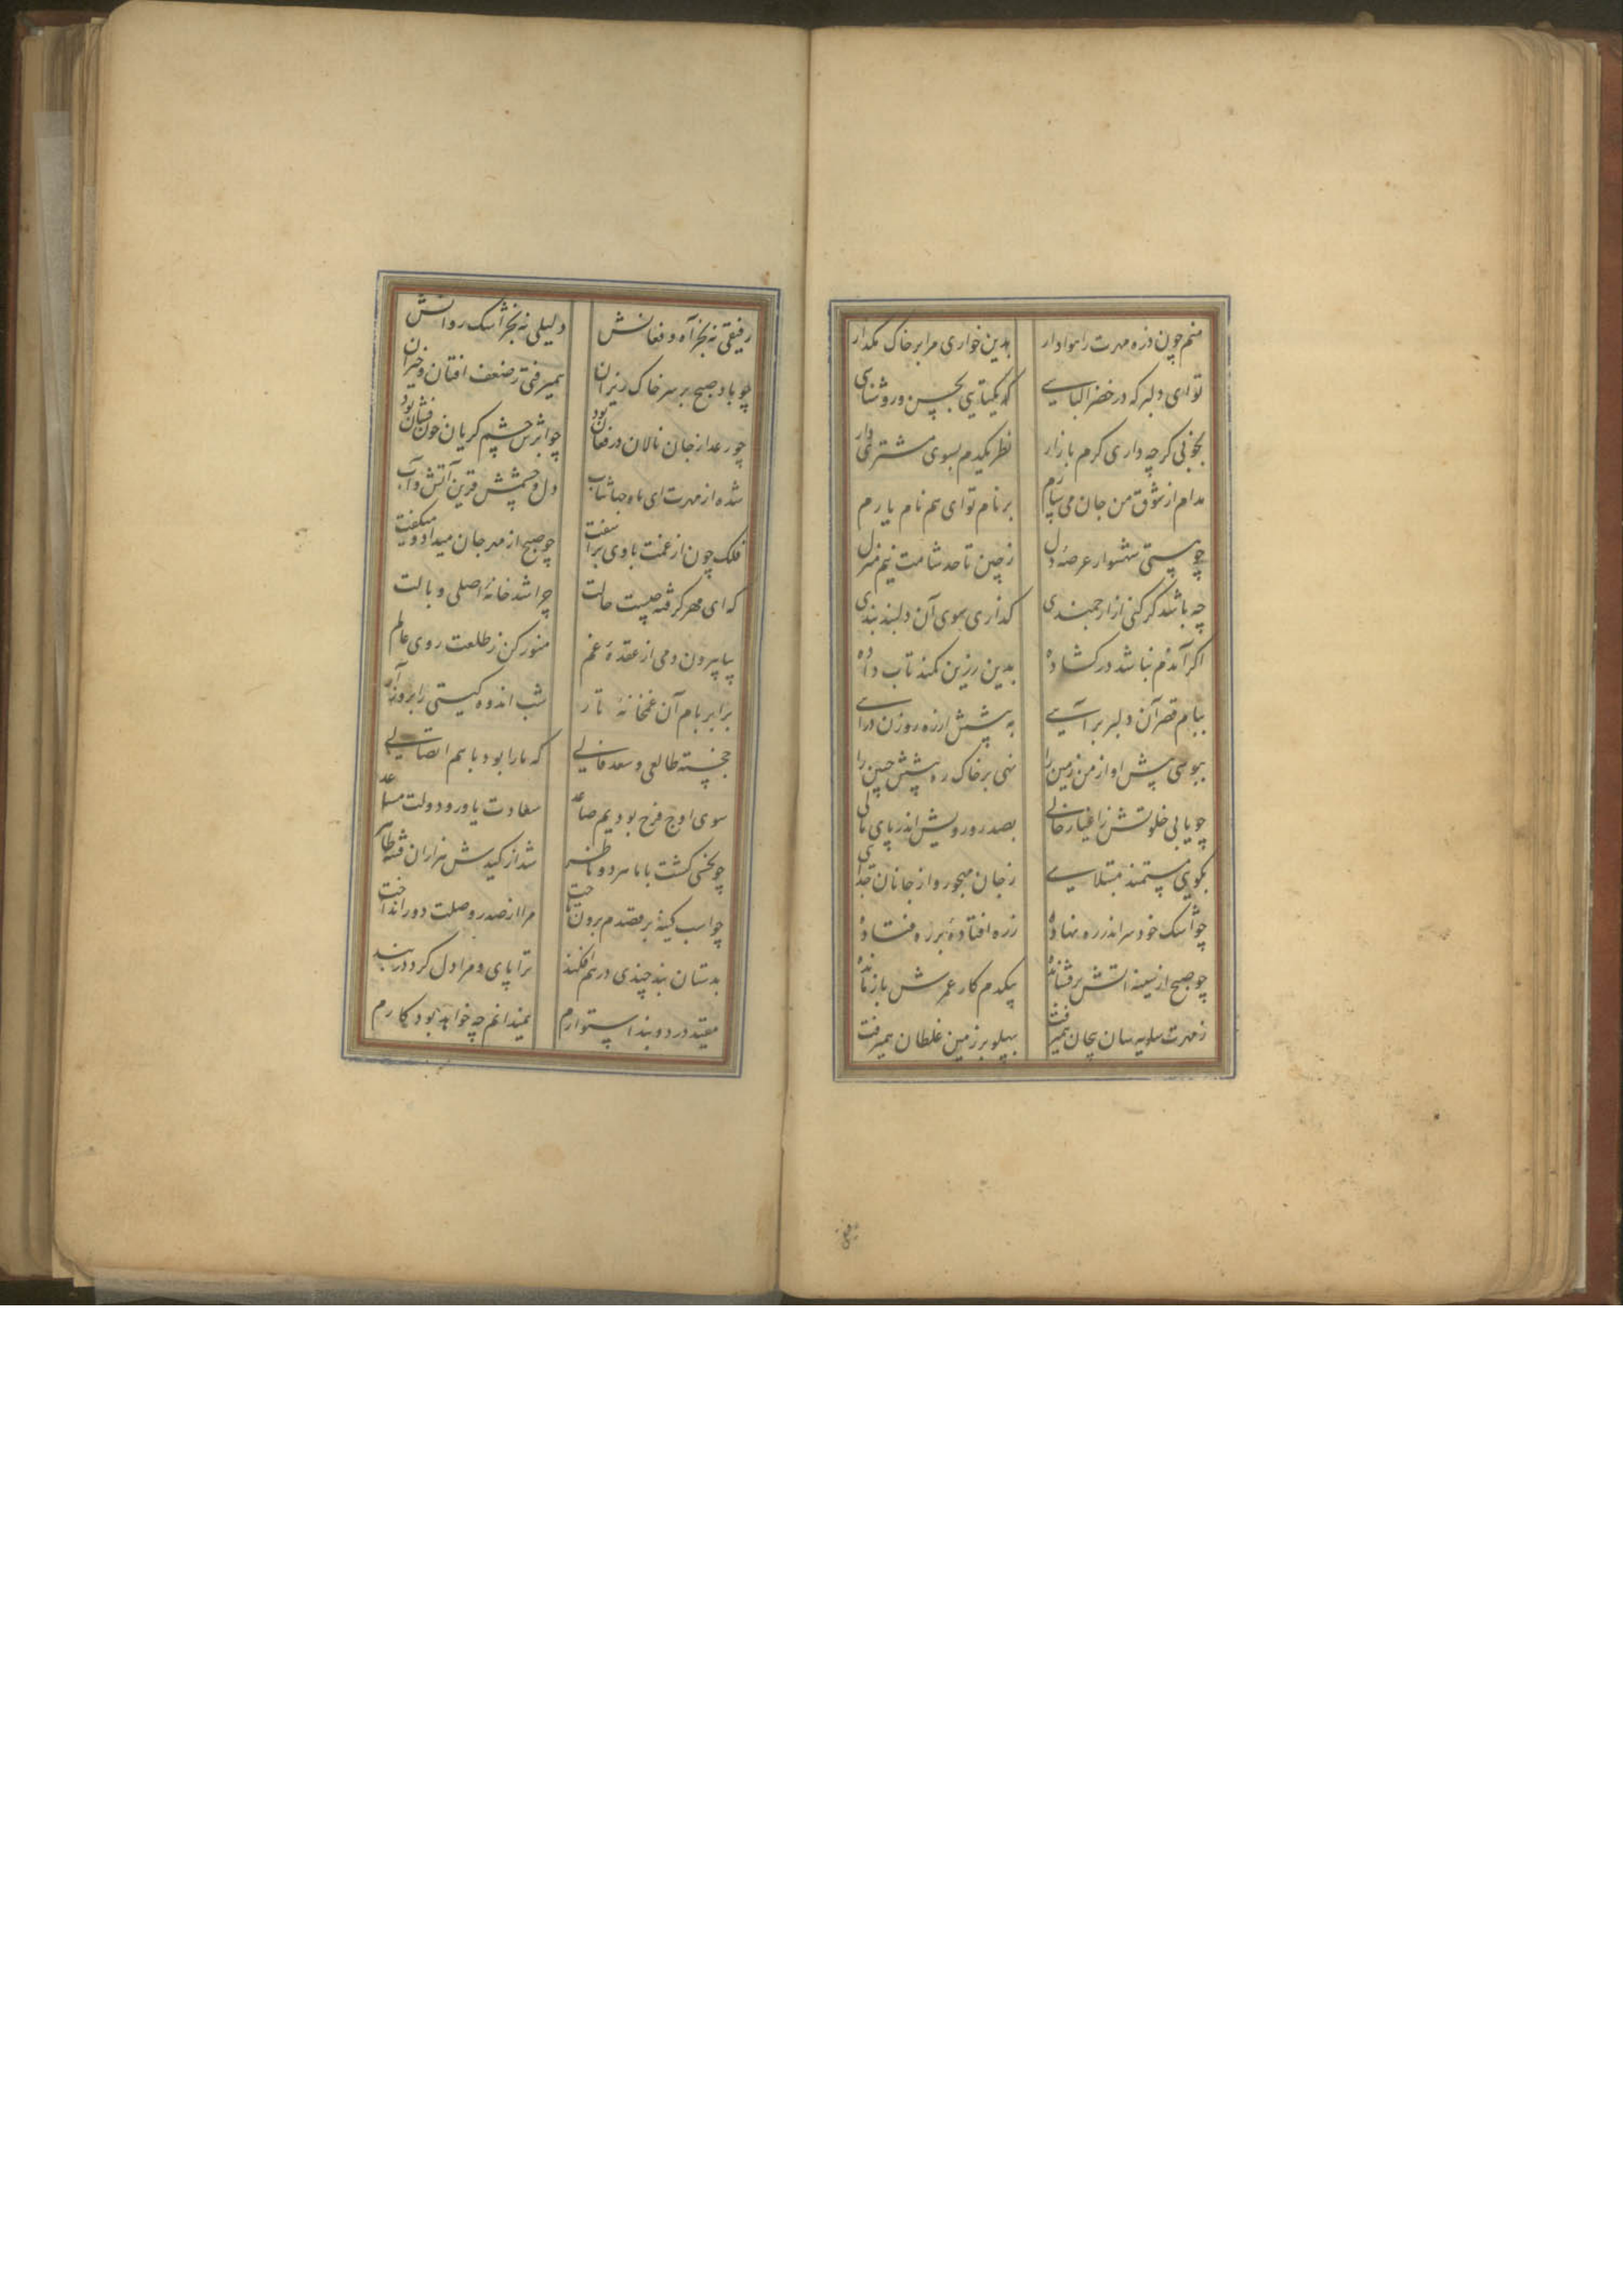 منم چون ذره مهرت را هوادار بدین خواری مرا بر خاک مگذار
تو ای دلبر که در خضرا لباسی که یکتایی بحسن و روشناسی
بخوبی گرچه داری گرم بازار نظر یکدم بسوی مشتری دار
مدام از شوق من جان می سپارم بر نام تو ای هم نام یارم
چو هستی شهسوار عرصه دل ز چین تا حد شامت نیم منزل
چه باشد گر کنی از ارجمندی گذاری سوی آن دلبند بندی
اگر آندم نباشد در گشاده بدین زرین کمند تاب داده
ببام قصر آن دلبر برآیی به پیشش از ره روزن درآیی
ببوسی پیش او از من زمین را نهی بر خاک ره پیشش جبین را
چو یابی خلوتش ز اغیار خالی بصدر و رویش اندر پای مالی
بگوی مستمند مبتلایی ز جان مهجور و از جانان جدایی
چو اشک خود سر اندر ره نهاده ز ره افتاده بر ره فتاده
چو صبح از سینه آتش برفشانده بیکدم کار عمرش باز مانده
ز مهرت سایه سان بیجان همیرفت بپهلو بر زمین غلطان همیرفت
رفیقی
رفیقی نه بجز آه و فغانش دلیلی نه بجز اشک روانش
چو باد صبح بر سر خاک ریزان همیرفتی ز ضعف افتان و خیزان
چو رعد از جان نالان در فغان بود چو ابرش چشم گریان خون فشان بود
شده از مهرت ای ماه جهانتاب دل و چشمش قرین آتش و آب
فلک چون از غمت با وی برآشفت چو صبح از مهر جان میداد و میگفت
که ای مهر گرفته چیست حالت چرا شد خانه اصلی وبالت
بیا بیرون دمی از عقده غم منور کن ز طلعت روی عالم
برابر بام آن غمخانه تار شب اندوه گیتی را بروز آر
خجسته طالعی و سعد فالی که ما را بود با هم اتصالی
سوی اوج فرح بودیم صاعد سعادت یاور و دولت مساعد
چو نحسی گشت با ما سرد و ناظر شد از کیدش هزاران فتنه ظاهر
چو اسب کینه بر قصدم برون تاخت مرا از صدر وصلت دور انداخت
بدستان بند چندی در هم افکند ترا پای و مرا دل کرد در بند
مقید در دو بند استوارم نمیدانم چه خواهد بود کارم